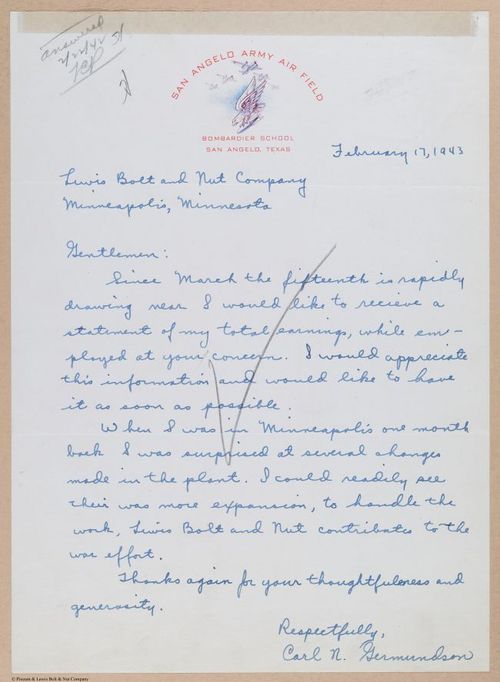 answered
2/22/42
SAN ANGELO ARMY AIR FIELD
BOMBARDIER SCHOOL
SAN ANGELO, TEXAS
February 17, 1943
Lewis Bolt and Nut Company
Minneapolis, Minnesota
Gentlemen:
Since March the fifteenth is rapidly
drawing near I would like to recieve a
statement of my total earnings, while em-
ployed at your concern. I would appreciate
this information and would like to have
it as soon as possible.
When I was in Minneapolis one month
back I was surprised at several changes
made in the plant. I could readily see
their was more expansion, to handle the
work, Lewis Bolt and Nut contributes to the
war effort.
Thanks again for your thoughtfulness and
generosity.
Respectfully,
Carl N. Germundson
© Pioneer & Lewis Bolt & Nut Company